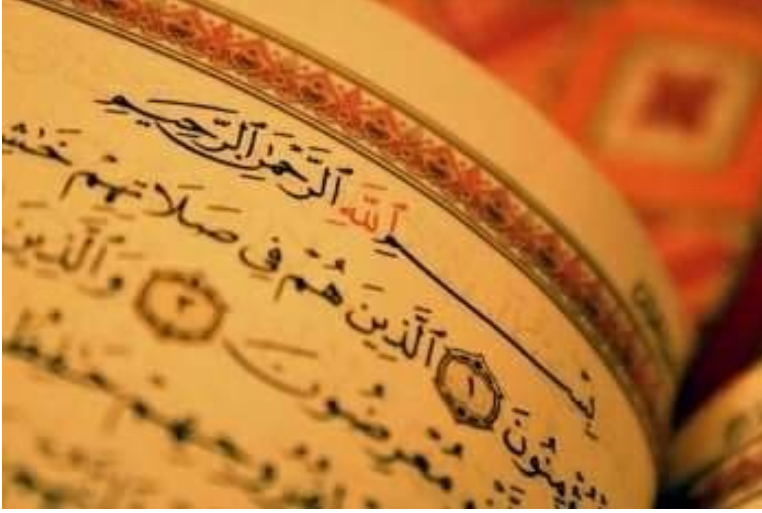 بِسْمِ ٱللَّهِ ٱلرَّحْمَٰنِ ٱلرَّحِيمِ
ؤْمِنُونَ ١ ٱلَّذِينَ هُمْ فِى صَلَاتِهِمْ خَٰشِ
مُعْرِضُونَ ٣ وَٱلَّذِينَ
لِفُرُوجِهِمْ حَٰفِظُ